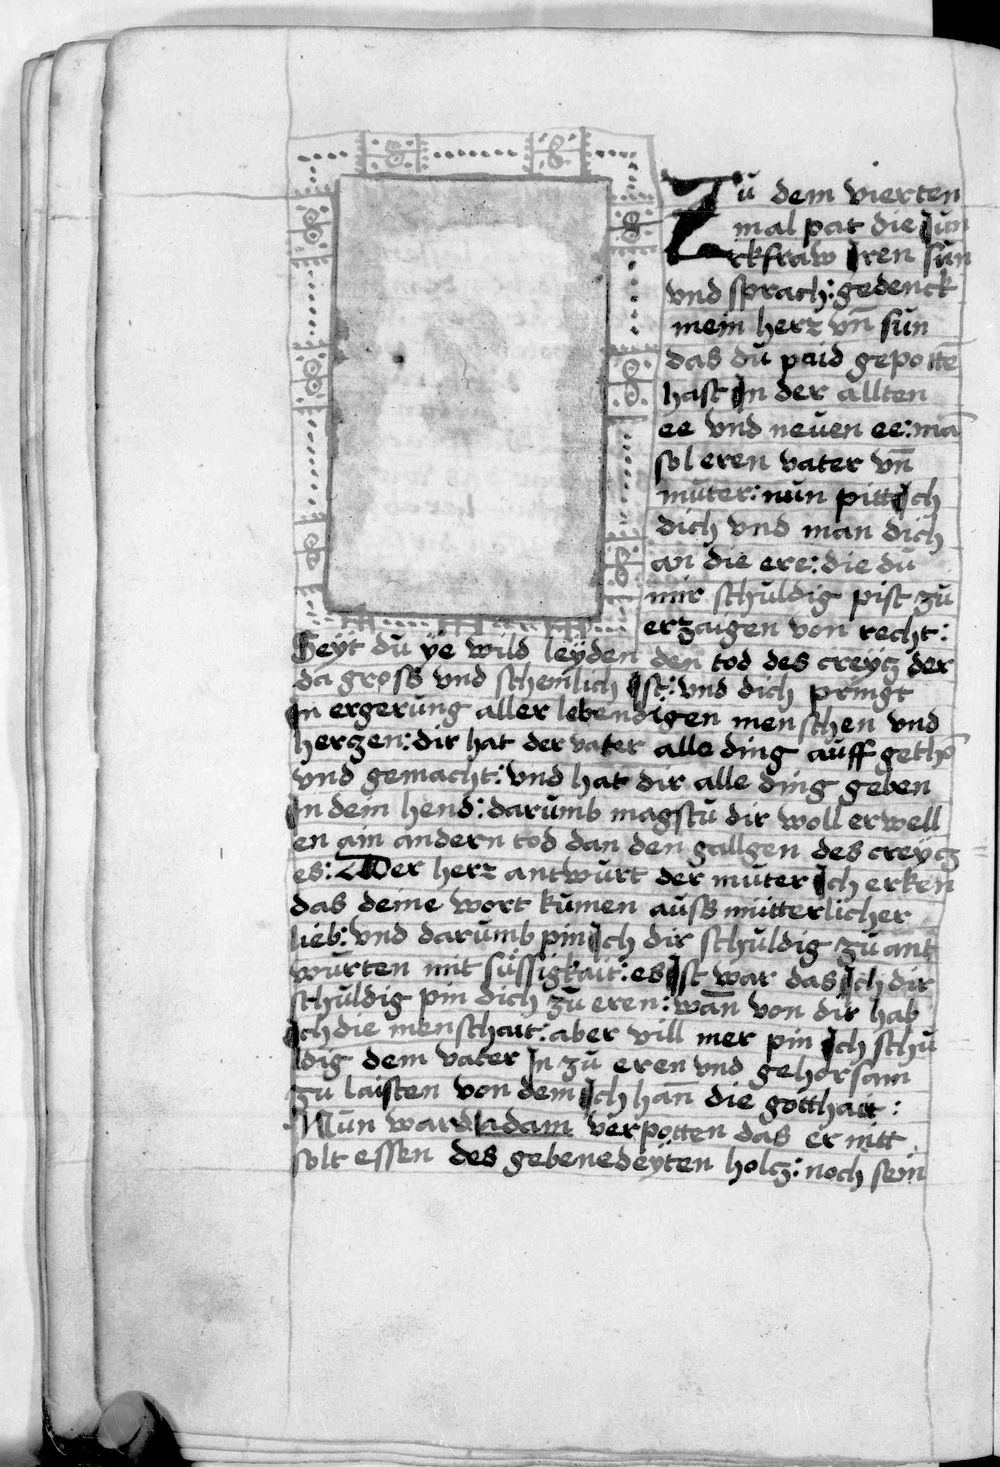 Zů dem vierten
mal pat die Jun
ckfraw Jren sun
vnd sprach: gedenck
mein herr vn̄ sun
das du paid gepottē
hast Jn der allten
ee vnd neuen ee: mā
sol eren vater vn̄
muter: nun pitt Jch
dich vnd man dich
an die ere: die du
mir schuldig pist zu
erzaigen von recht:
Seyt du ÿe wild leyden den tod des creytz der
da gross vnd schemlich Jst: vnd dich pringt
Jn ergerung aller lebendigen menschen vnd
herzen: dir hat der vater alle ding auff gethō
vnd gemacht: vnd hat dir alle ding geben
Jn dein hend: darumb magstu dir woll erwell
en ain andern tod dan den gallgen des creytz
es: Der herr antwurt der muter Jch erken
das deine wort kumen auss mutterlicher
lieb: vnd darumb pin Jch dir schuldig zu ant
wurten mit süssigkait: es Jst war das Jch dir
schuldig pin dich zu eren: wan̄ von dir hab
Jch die menschait: aber vill mer pin Jch schu
ldig dem vater Jn zu eren vnd gehorsam
zu laisten von dem Jch han̄ die gotthait:
Nun ward Adam verpotten das er nitt
solt essen des gebenedeyten holtz: noch sein